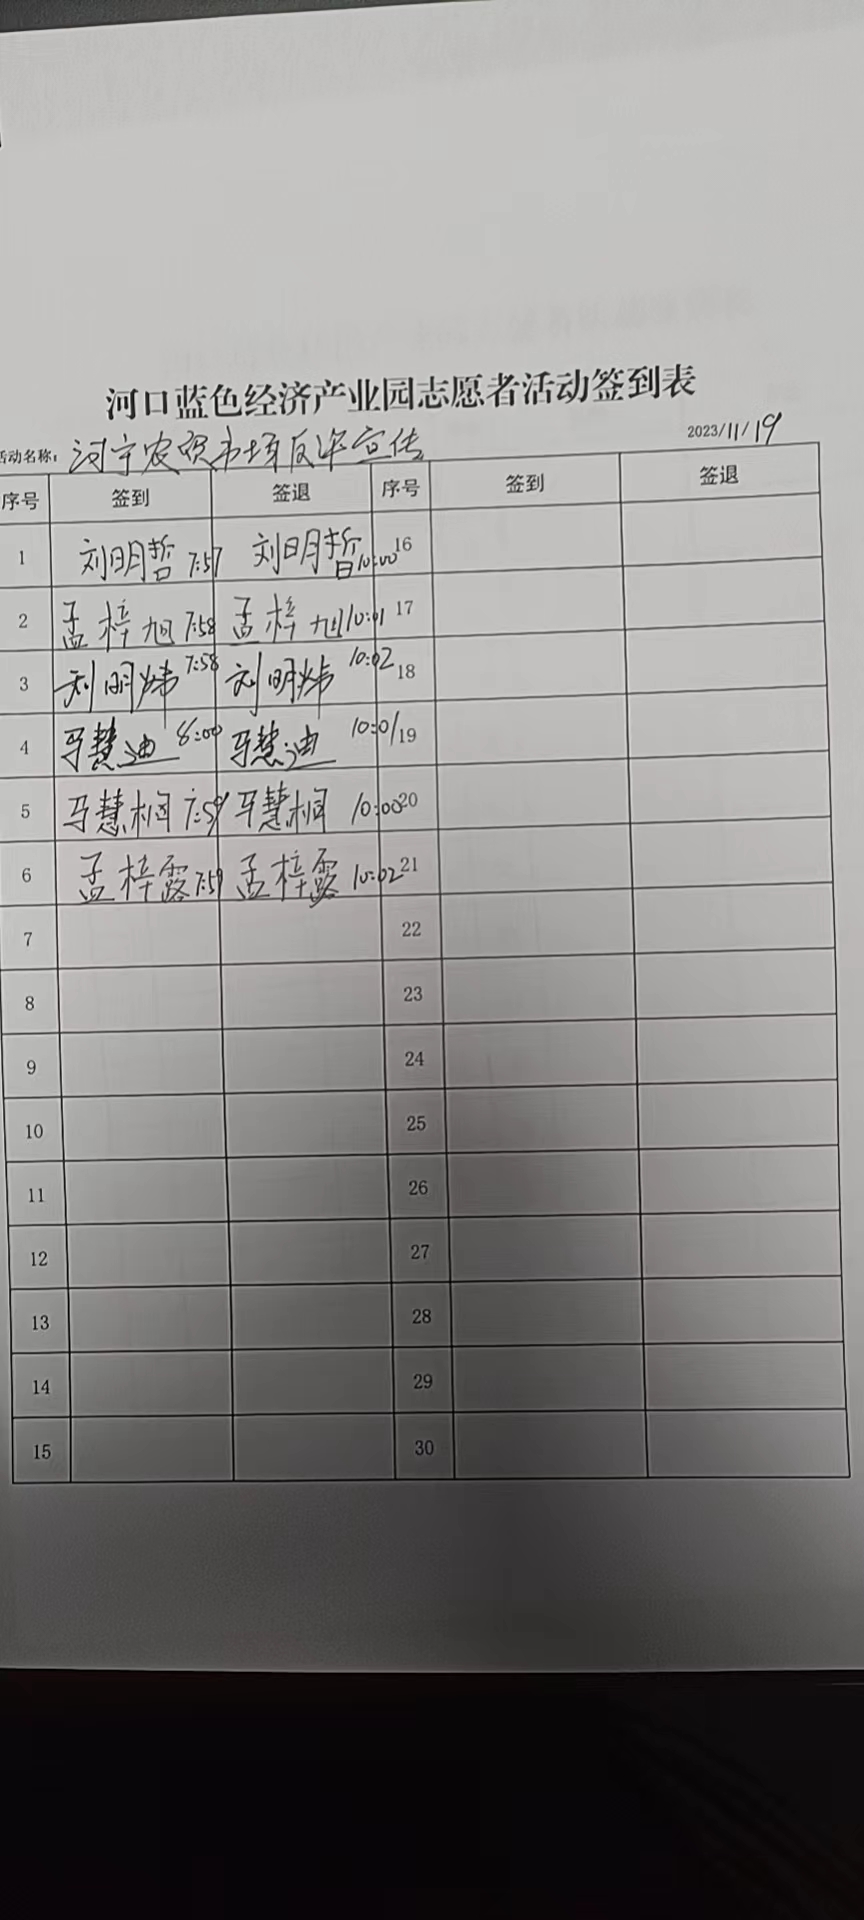 河口蓝色经济产业园志愿者活动签到表
活动名称: 河宁农贸市场反诈宣传 2023/11/19
序号 签到 签退 序号 签到 签退
1 刘明哲 7:57 刘明哲 10:00 16
2 孟梓旭 7:58 孟梓旭 10:01 17
3 刘明炜 7:58 刘明炜 10:02 18
4 马慧迪 8:00 马慧迪 10:01 19
5 马慧桐 7:59 马慧桐 10:00 20
6 孟梓露 7:59 孟梓露 10:02 21
7 22
8 23
9 24
10 25
11 26
12 27
13 28
14 29
15 30